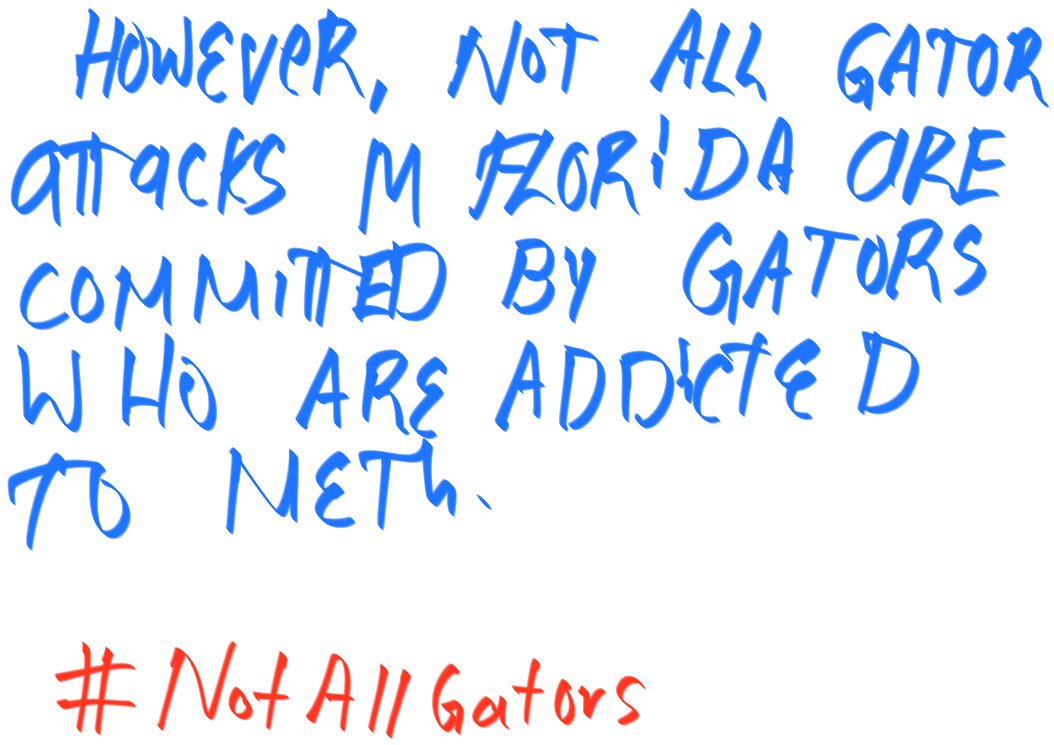 HOWEVER, NOT ALL GATOR
ATTACKS IN FLORIDA ARE
COMMITTED BY GATORS
WHO ARE ADDICTED
TO METH.
#NotAllGators